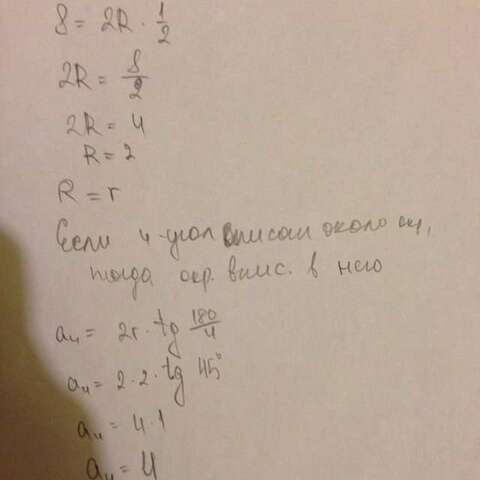 8 = 2R · 1/2
2R = 8/2
2R = 4
R = 2
R = r
Если 4-угол описан около окр,
тогда окр. впис. в него
a₄ = 2r · tg 180/4
a₄ = 2 · 2 · tg 45°
a₄ = 4 · 1
a₄ = 4